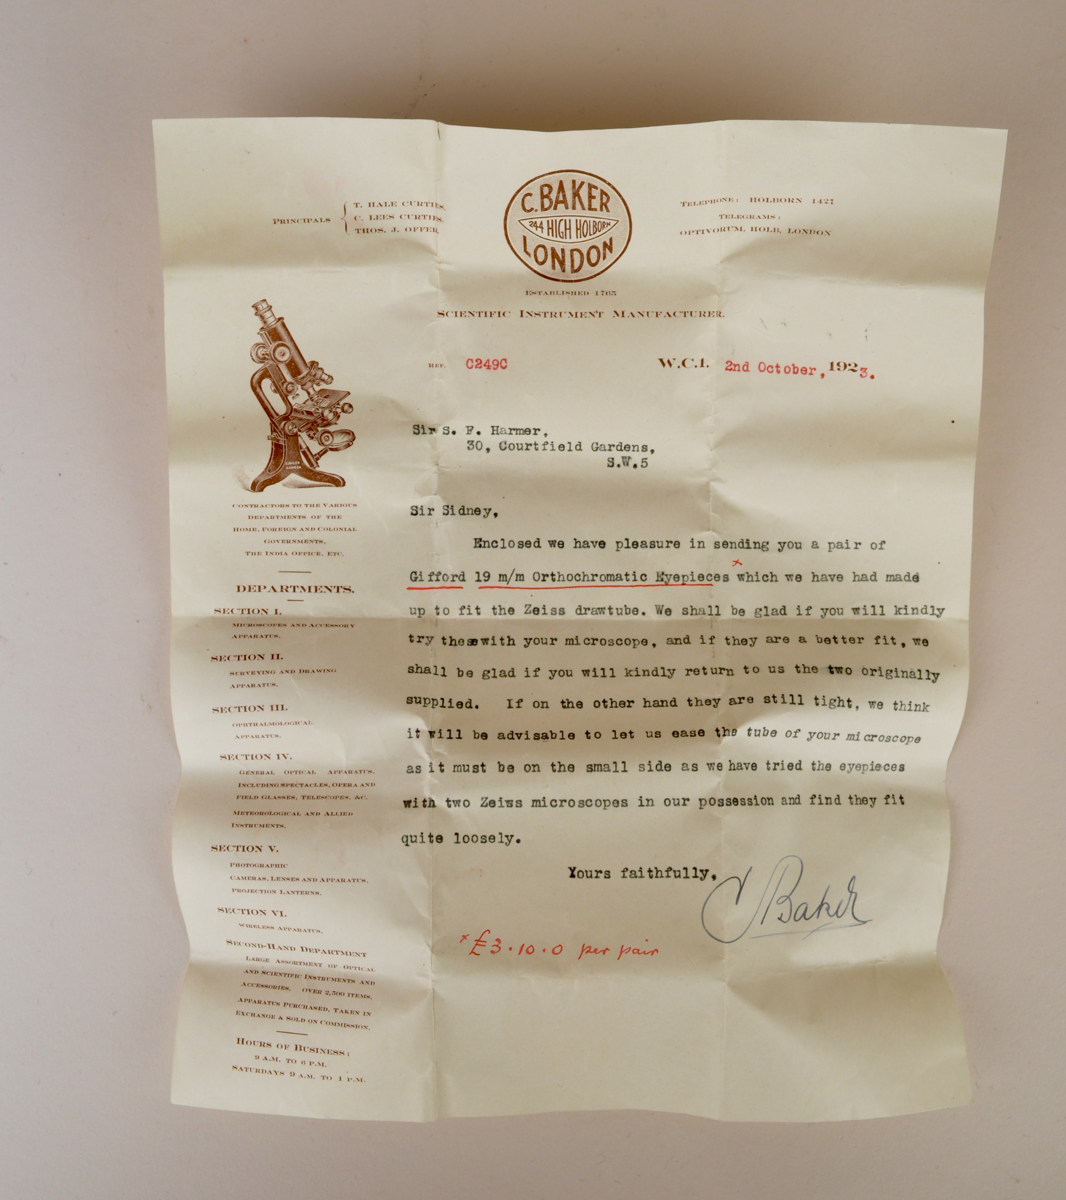 PRINCIPALS
T. HALE CURTIES.
C. LEES CURTIES.
THOS. J. OFFER.
C. BAKER
244 HIGH HOLBORN
LONDON
TELEPHONE: HOLBORN 1427
TELEGRAMS:
OPTIVORUM, HOLB, LONDON
ESTABLISHED 1765
SCIENTIFIC INSTRUMENT MANUFACTURER.
REF. C249C
W.C.1. 2nd October, 1923.
Sir S. F. Harmer,
30, Courtfield Gardens,
S.W.5
Sir Sidney,
Enclosed we have pleasure in sending you a pair of
x
Gifford 19 m/m Orthochromatic Eyepieces which we have had made
up to fit the Zeiss drawtube. We shall be glad if you will kindly
try these with your microscope, and if they are a better fit, we
shall be glad if you will kindly return to us the two originally
supplied. If on the other hand they are still tight, we think
it will be advisable to let us ease the tube of your microscope
as it must be on the small side as we have tried the eyepieces
with two Zeiss microscopes in our possession and find they fit
quite loosely.
Yours faithfully,
C Baker
x £3.10.0 per pair
CONTRACTORS TO THE VARIOUS
DEPARTMENTS OF THE
HOME, FOREIGN AND COLONIAL
GOVERNMENTS,
THE INDIA OFFICE, ETC.
DEPARTMENTS.
SECTION I.
MICROSCOPES AND ACCESSORY
APPARATUS.
SECTION II.
SURVEYING AND DRAWING
APPARATUS.
SECTION III.
OPHTHALMOLOGICAL
APPARATUS.
SECTION IV.
GENERAL OPTICAL APPARATUS,
INCLUDING SPECTACLES, OPERA AND
FIELD GLASSES, TELESCOPES, &C.
METEOROLOGICAL AND ALLIED
INSTRUMENTS.
SECTION V.
PHOTOGRAPHIC
CAMERAS, LENSES AND APPARATUS,
PROJECTION LANTERNS.
SECTION VI.
WIRELESS APPARATUS.
SECOND-HAND DEPARTMENT
LARGE ASSORTMENT OF OPTICAL
AND SCIENTIFIC INSTRUMENTS AND
ACCESSORIES. OVER 2,500 ITEMS.
APPARATUS PURCHASED, TAKEN IN
EXCHANGE & SOLD ON COMMISSION.
HOURS OF BUSINESS:
9 A.M. TO 6 P.M.
SATURDAYS 9 A.M. TO 1 P.M.